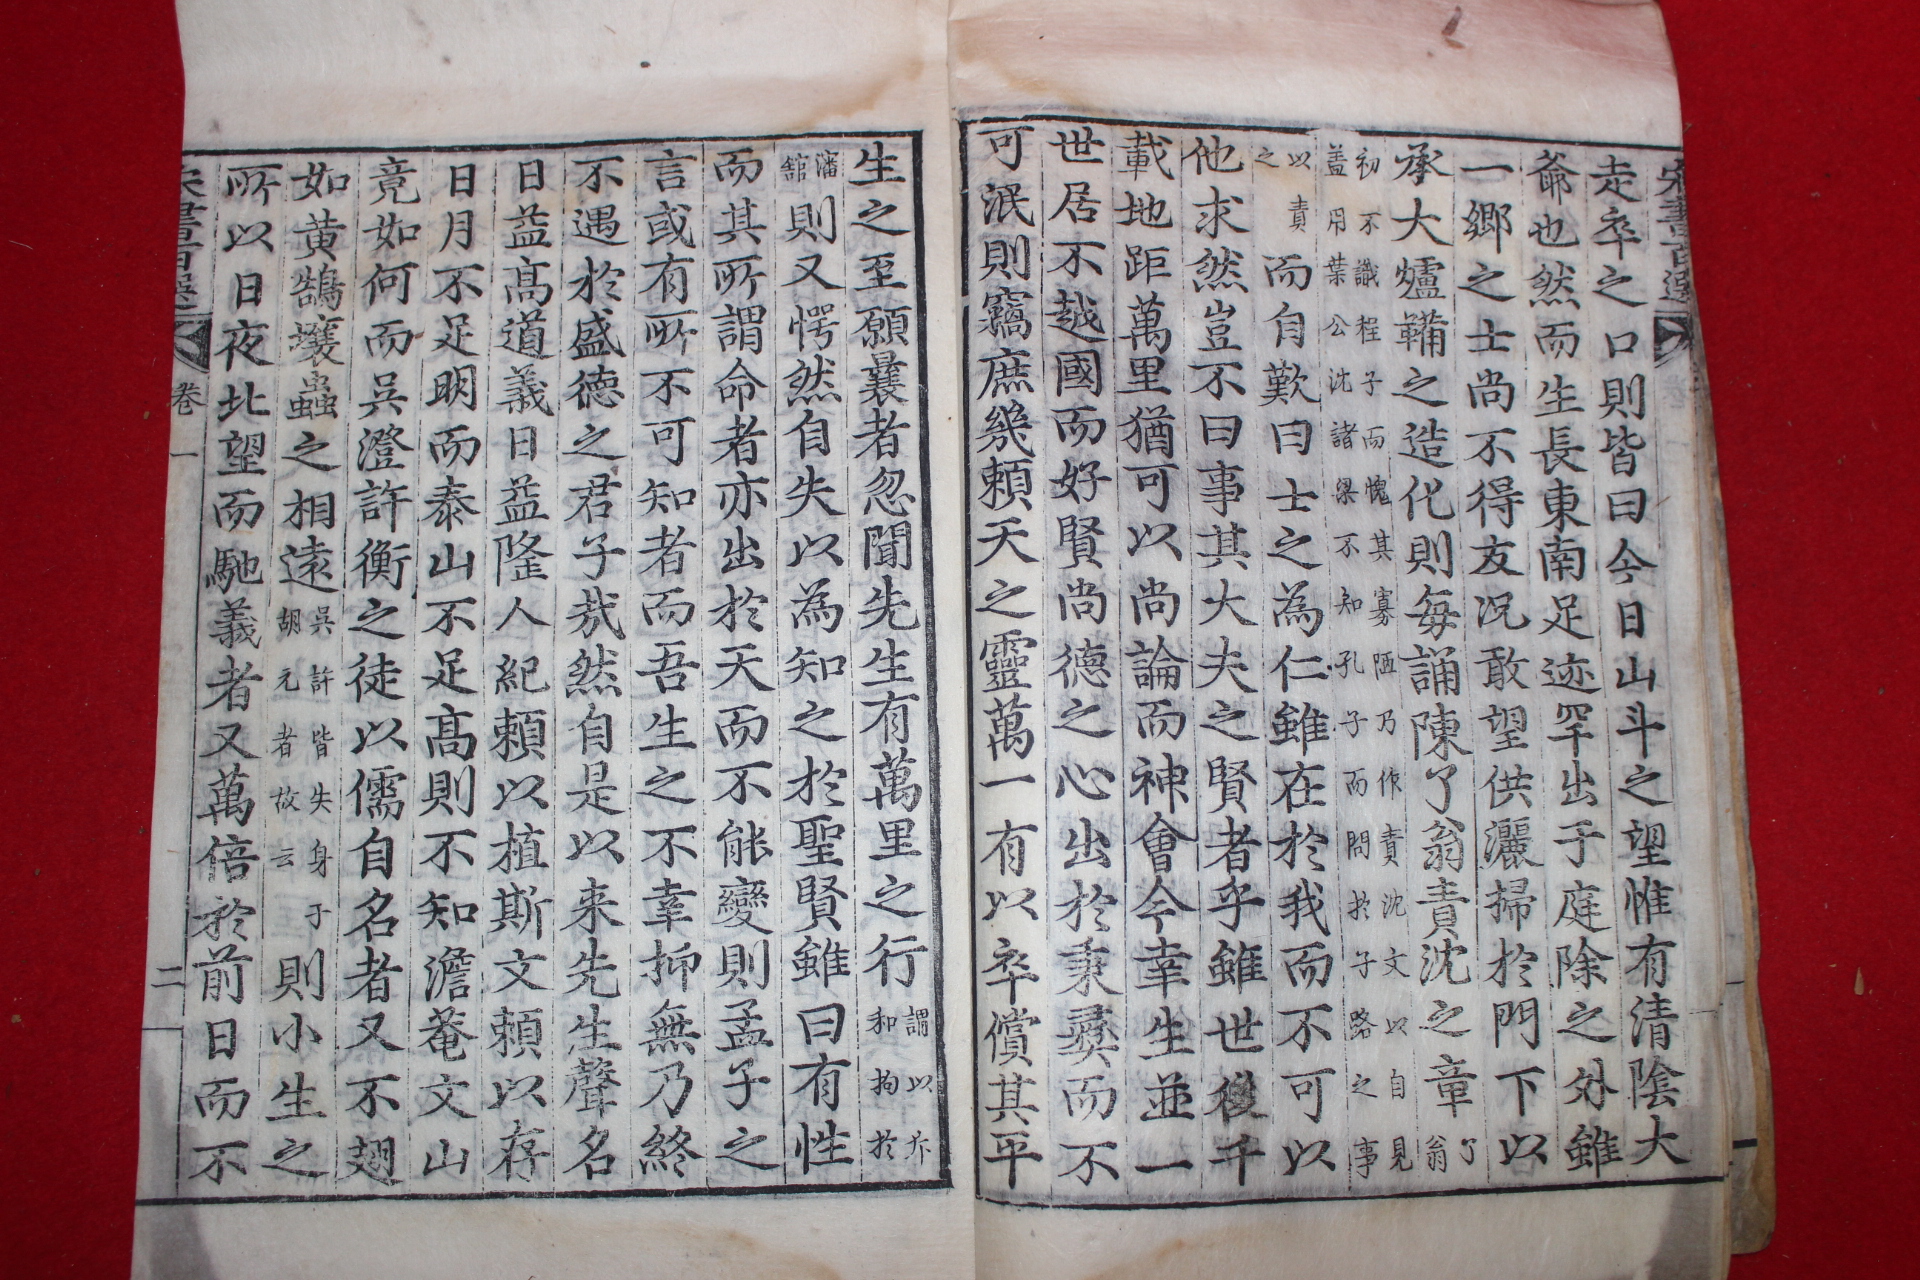 走卒之口則皆曰今日山斗之望惟有清陰大
爺也然而生長東南足迹罕出于庭除之外雖
一鄉之士尚不得友況敢望供灑掃於門下以
承大爐鞴之造化則每誦陳了翁責沈之章了翁
初不識程子而愧其寡陋乃作責沈文以自見
盖用葉公沈諸梁不知孔子而問於子路之事
以責之而自歎曰士之為仁雖在於我而不可以
他求然豈不曰事其大夫之賢者乎雖世後千
載地距萬里猶可以尚論而神會今幸生並一
世居不越國而好賢尚德之心出於秉彝而不
可泯則竊庶幾賴天之靈萬一有以卒償其平
生之至願曩者忽聞先生有萬里之行謂以斥和拘於
瀋舘則又愕然自失以為知之於聖賢雖曰有性
而其所謂命者亦出於天而不能變則孟子之
言或有所不可知者而吾生之不幸抑無乃終
不遇於盛德之君子哉然自是以来先生聲名
日益高道義日益隆人紀賴以植斯文賴以存
日月不足明而泰山不足高則不知澹菴文山
竟如何而吳澄許衡之徒以儒自名者又不翅
如黄鵠壤蟲之相遠吳許皆失身于胡元者故云則小生之
所以日夜北望而馳義者又萬倍於前日而不
宋書百選 卷一 二